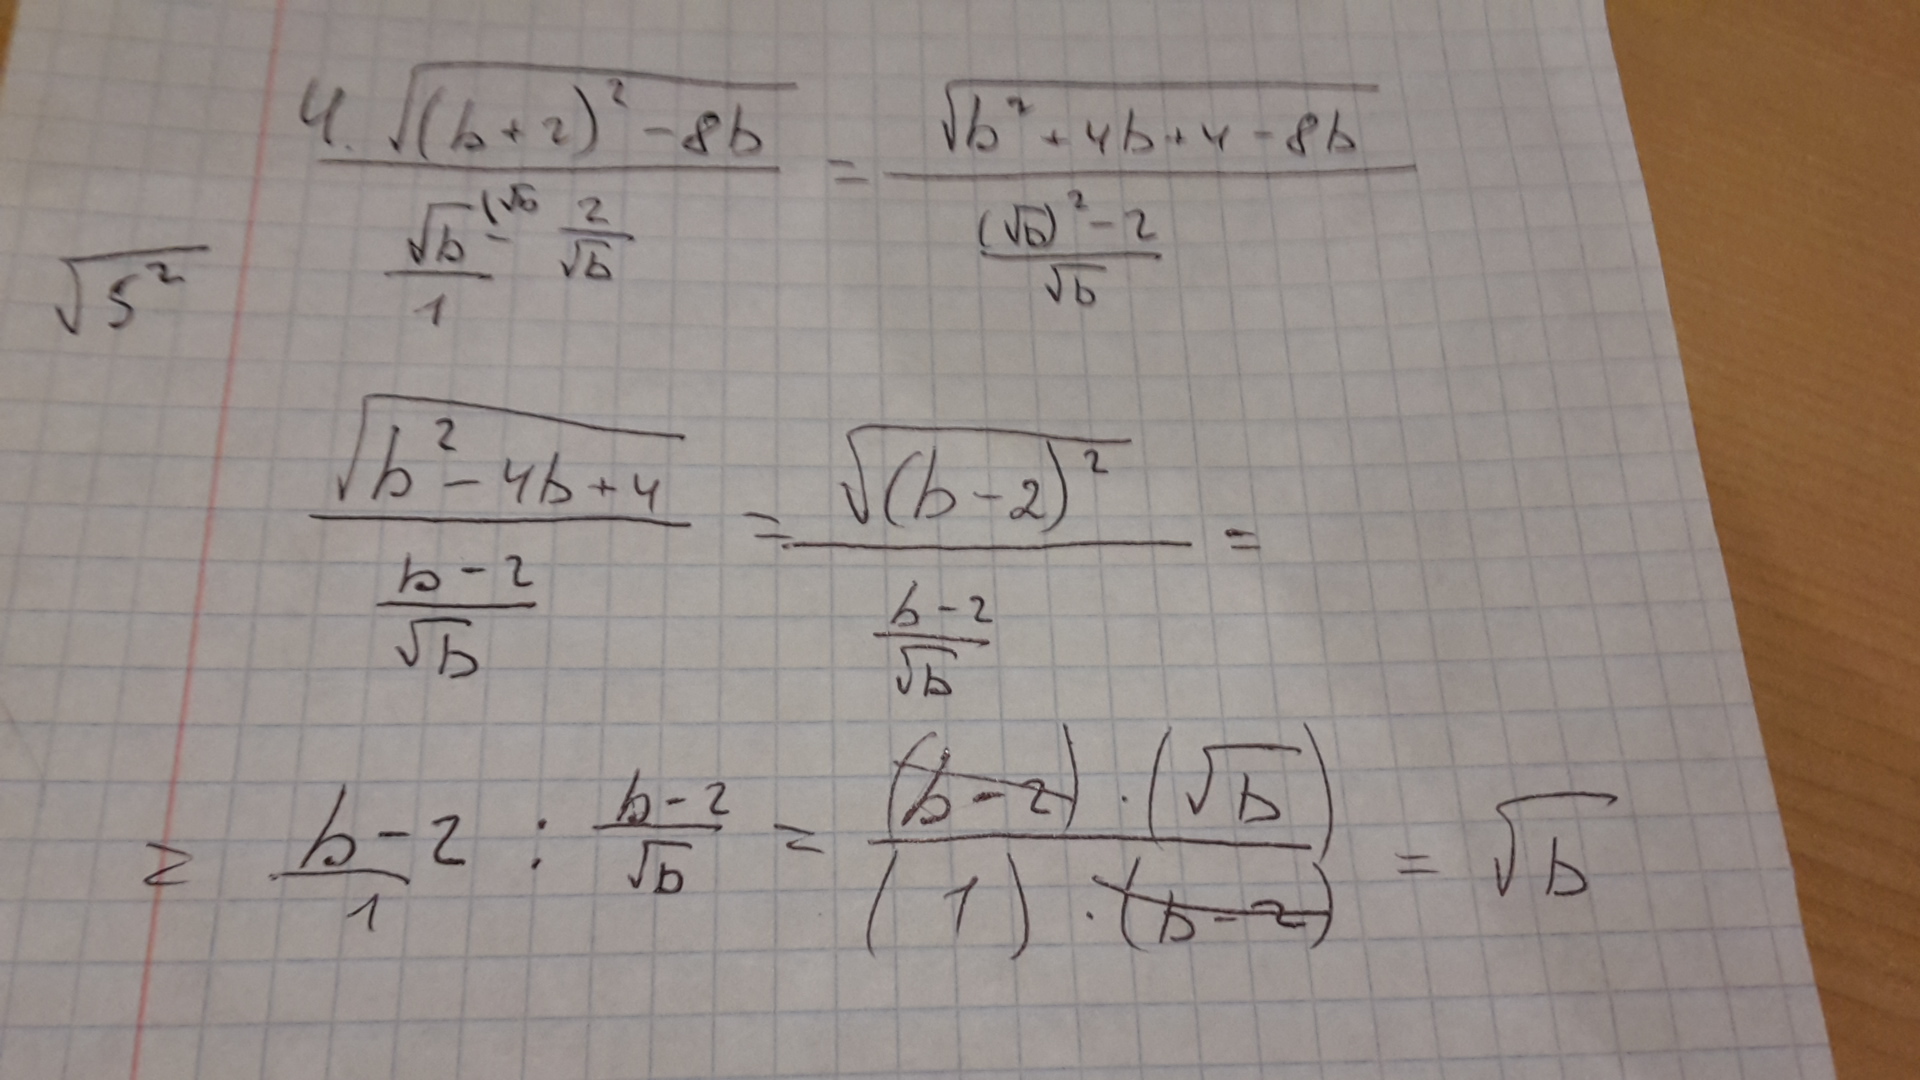 4. √((b+2)² - 8b) / (√b/1 (√b - 2/√b) = √(b² + 4b + 4 - 8b) / (((√b)² - 2)/√b)
√5²
√(b² - 4b + 4) / ((b - 2)/√b) = √((b - 2)²) / ((b - 2)/√b) =
= (b - 2)/1 : (b - 2)/√b = (b - 2) · (√b) / (1) · (b - 2) = √b